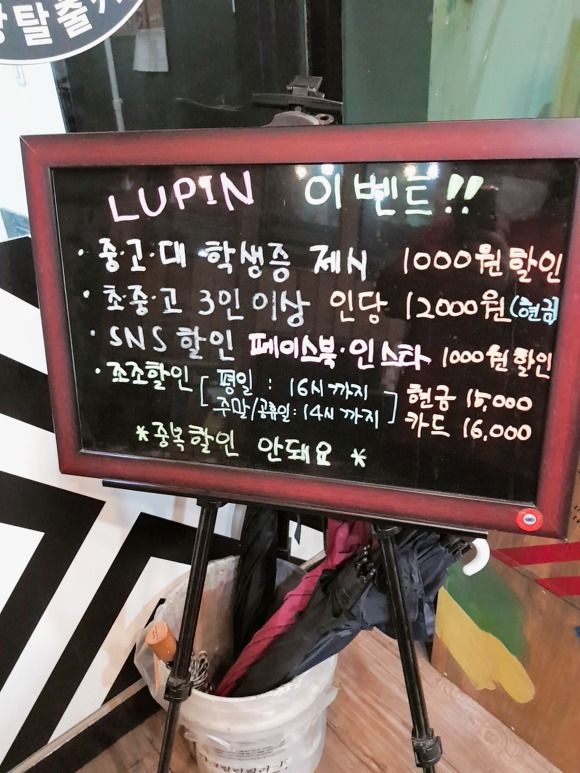 탈출
LUPIN 이벤트!!
· 중·고·대 학생증 제시 1000원 할인
· 초중·고 3인 이상 인당 12000원(현금)
· SNS 할인 페이스북·인스타 1000원 할인
· 조조할인 [ 평일 : 16시 까지 ] 현금 15,000
주말/공휴일: 14시 까지 카드 16,000
*중복할인 안돼요 *